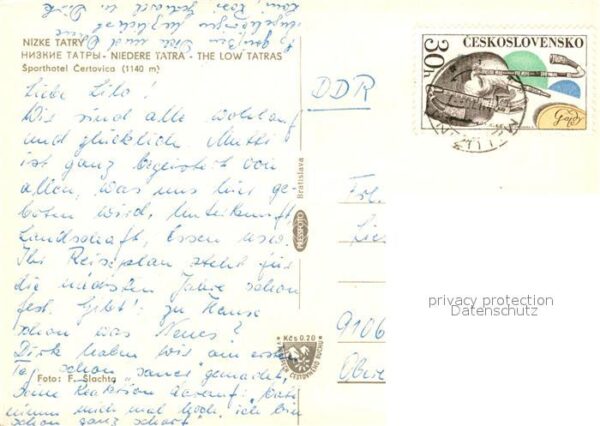 NIZKE TATRY
НИЗКИЕ ТАТРЫ - NIEDERE TATRA - THE LOW TATRAS
Športhotel Čertovica (1140 m)
Liebe Lilo!
Wir sind alle wohlauf
und glücklich. Mutti
ist ganz begeistert von
allem, was uns hier ge-
boten wird, Unterkunft,
Landschaft, Essen usw.
Ihr Reiseplan steht für
die nächsten Jahre schon
fest. Gibt's zu Hause
schon was Neues?
Dirk haben wir am ersten
Tag schon
Seine Reaktion darauf:
nimm mich mal hoch, ich bin
schon ganz
Foto: F. Šlachta
Bratislava
PRESSFOTO
Kčs 0.20
DDR
ČESKOSLOVENSKO
30 h
Frl.
9106
privacy protection
Datenschutz